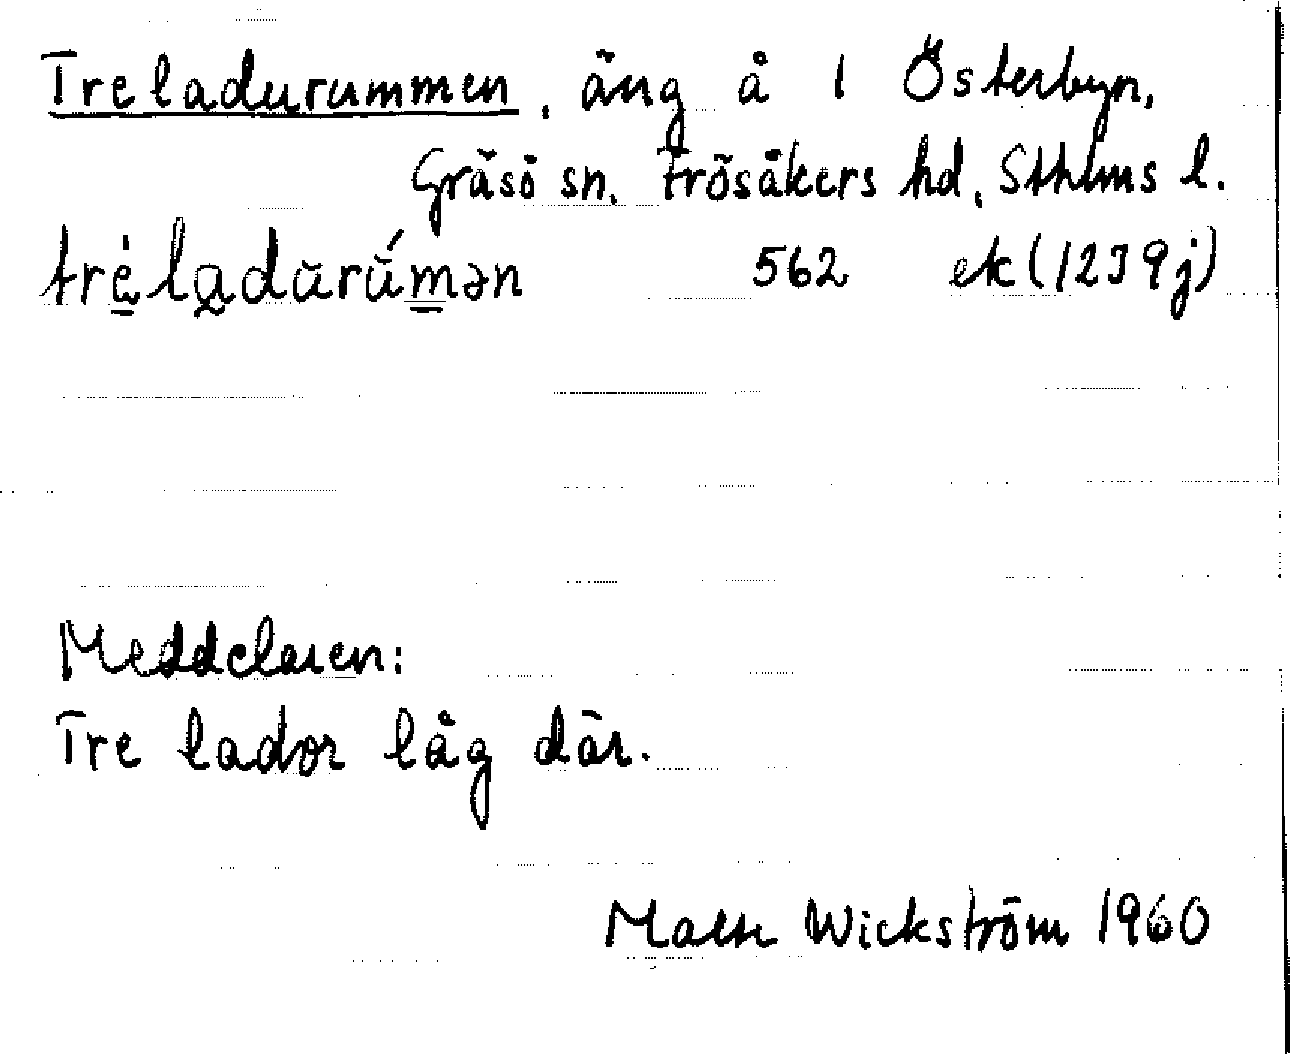 Treladurummen, äng å 1 Österbyn,
Gräsö sn. Frösåkers hd, Sthlms l.
562 ek (1239j)
Meddelaren:
Tre lador låg där.
Wickström 1960